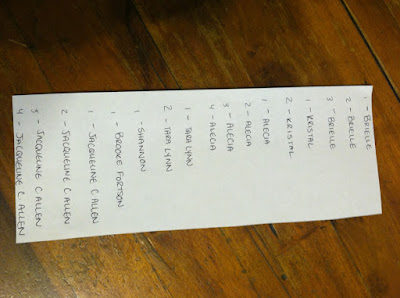 1 - BRIELLE
2 - BRIELLE
3 - BRIELLE
1 - KRISTAL
2 - KRISTAL
1 - ALECIA
2 - ALECIA
3 - ALECIA
4 - ALECIA
1 - TARA LYNN
2 - TARA LYNN
1 - SHANNON
1 - BROOKE FORTSON
1 - JACQUELINE C ALLEN
2 - JACQUELINE C ALLEN
3 - JACQUELINE C ALLEN
4 - JACQUELINE C ALLEN